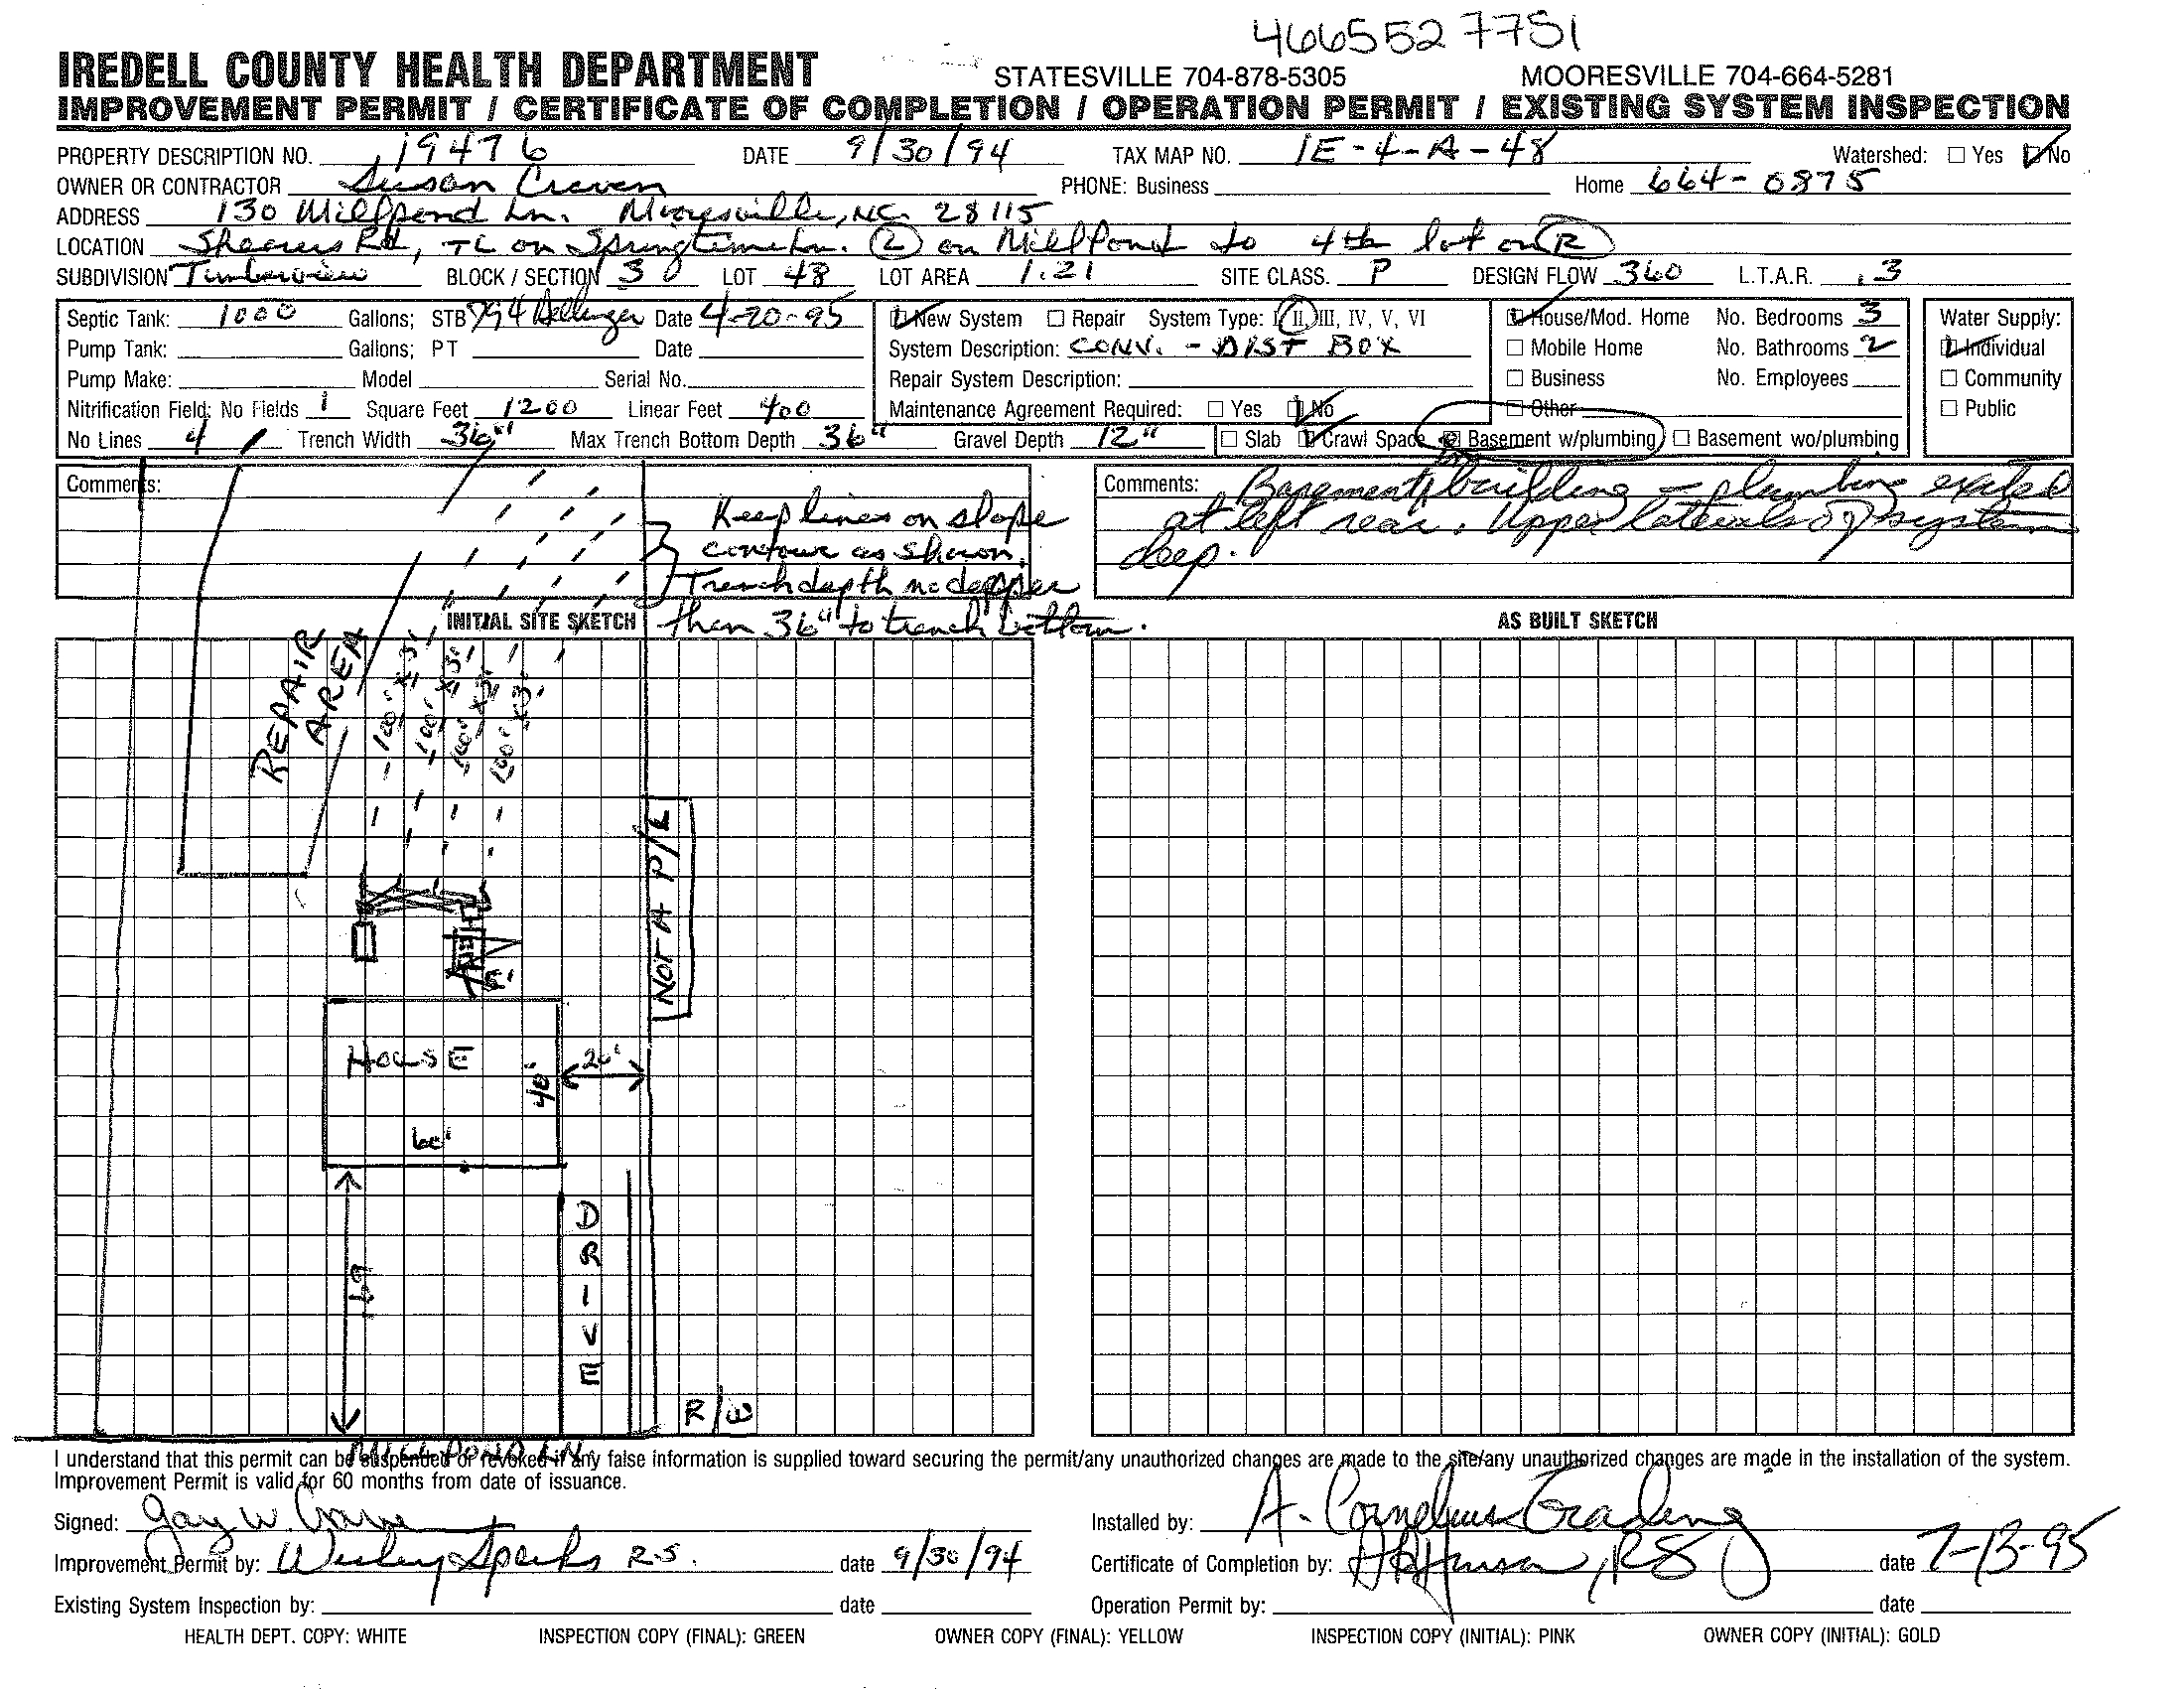 4665527751
IREDELL COUNTY HEALTH DEPARTMENT STATESVILLE 704-878-5305 MOORESVILLE 704-664-5281
IMPROVEMENT PERMIT / CERTIFICATE OF COMPLETION / OPERATION PERMIT / EXISTING SYSTEM INSPECTION
PROPERTY DESCRIPTION NO. 19476 DATE 9/30/94 TAX MAP NO. 1E-4-A-48 Watershed: Yes No
OWNER OR CONTRACTOR Susan Craven PHONE: Business Home 664-0875
ADDRESS 130 Millpond Ln. Mooresville, NC. 28115
LOCATION Shearers Rd, TL on Springtime Ln. L on Millpond to 4th lot on R
SUBDIVISION Timberview BLOCK / SECTION 3 LOT 48 LOT AREA 1.21 SITE CLASS. P DESIGN FLOW 360 L.T.A.R. .3
Septic Tank: 1000 Gallons; STB 794 Dellinger Date 4-20-95 New System Repair System Type: I, II, III, IV, V, VI House/Mod. Home No. Bedrooms 3 Water Supply:
Pump Tank: Gallons; PT Date System Description: CONV. - DIST BOX Mobile Home No. Bathrooms 2 Individual
Pump Make: Model Serial No. Repair System Description: Business No. Employees Community
Nitrification Field: No Fields 1 Square Feet 1200 Linear Feet 400 Maintenance Agreement Required: Yes No Other Public
No Lines 4 Trench Width 36" Max Trench Bottom Depth 36" Gravel Depth 12" Slab Crawl Space Basement w/plumbing Basement wo/plumbing
Comments: Keep lines on slope
contour as shown.
Trench depth no deeper
than 36" to trench bottom.
Comments: Basement in building - plumbing exited
at left rear. Upper laterals of system
deep.
INITIAL SITE SKETCH
AS BUILT SKETCH
REPAIR
AREA
100' x 3'
100' x 3'
100' x 3'
100' x 3'
NOT A P/L
5'
HOUSE
40'
20'
60'
DRIVE
R/W
MILLPOND LN
I understand that this permit can be suspended or revoked if any false information is supplied toward securing the permit/any unauthorized changes are made to the site/any unauthorized changes are made in the installation of the system.
Improvement Permit is valid for 60 months from date of issuance.
Signed: Gay W. Craven
Installed by: A. Cornelius Grading
Improvement Permit by: Wesley Sparks R.S. date 9/30/94
Certificate of Completion by: RS date 7-13-95
Existing System Inspection by: date
Operation Permit by: date
HEALTH DEPT. COPY: WHITE INSPECTION COPY (FINAL): GREEN OWNER COPY (FINAL): YELLOW INSPECTION COPY (INITIAL): PINK OWNER COPY (INITIAL): GOLD